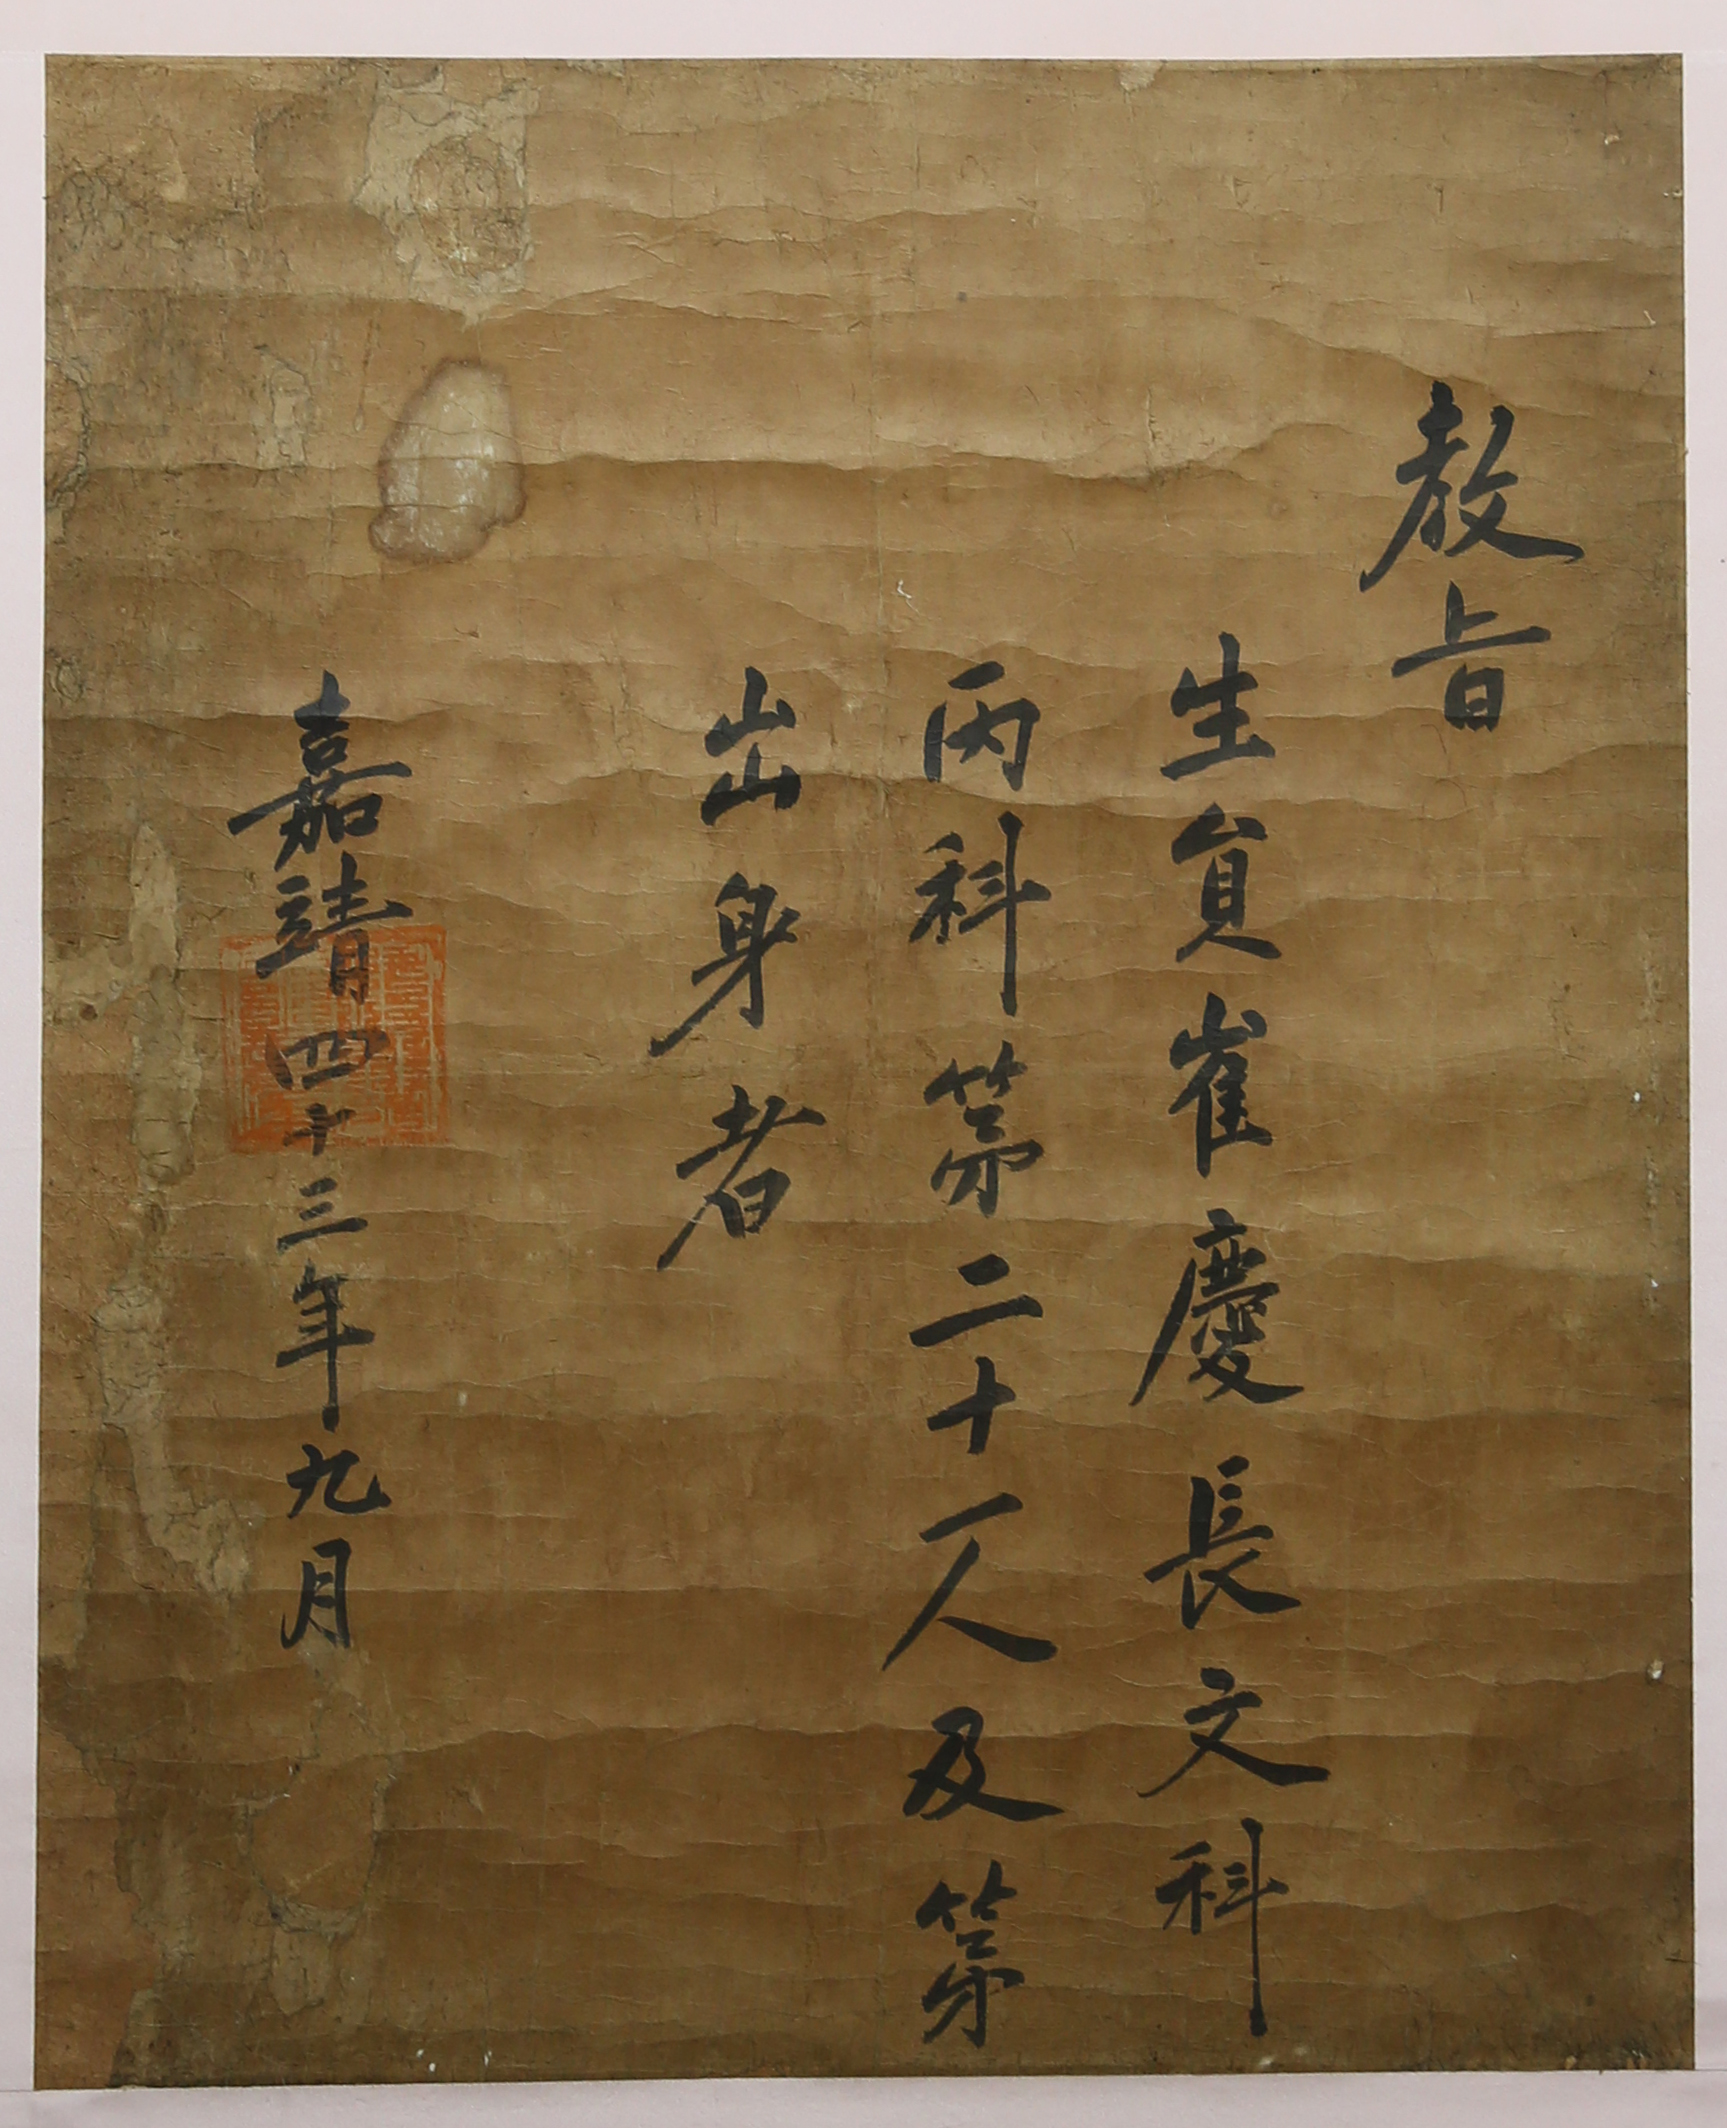 教旨
生員崔慶長文科
丙科第二十一人及第
出身者
嘉靖四十三年九月